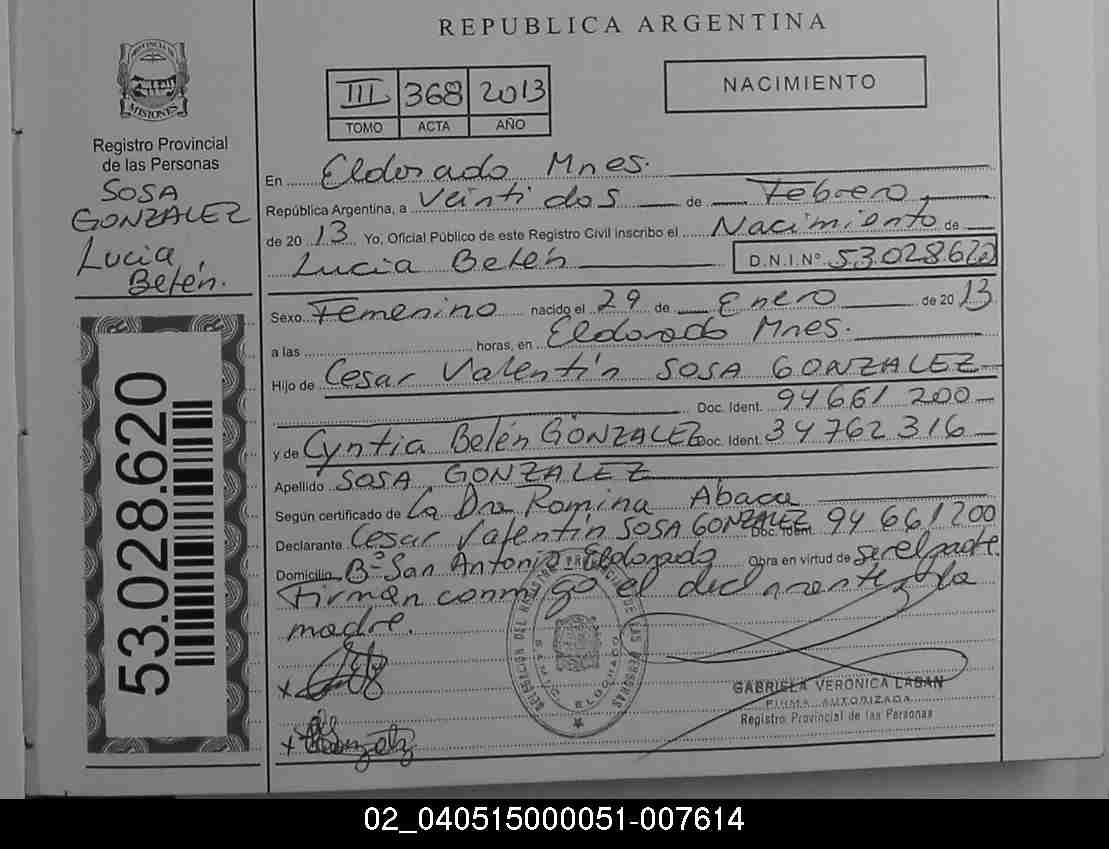 REPUBLICA ARGENTINA
PROVINCIA DE
MISIONES
Registro Provincial
de las Personas
SOSA
GONZALEZ
Lucia
Belén.
53.028.620
III 368 2013
TOMO ACTA AÑO
NACIMIENTO
En Eldorado Mnes.
República Argentina, a Veinti dos de Febrero,
de 20 13 Yo, Oficial Público de este Registro Civil inscribo el Nacimiento de
Lucia Belén D.N.I.Nº 53.028.620
Sexo Femenino nacido el 29 de Enero de 20 13
a las horas, en Eldorado Mnes.
Hijo de Cesar Valentín SOSA GONZALEZ
Doc. Ident. 94661200
y de Cyntia Belén GONZALEZ Doc. Ident. 34762316
Apellido SOSA GONZALEZ
Según certificado de La Dra Romina Abaca
Declarante Cesar Valentín SOSA GONZALEZ Doc. Ident. 94661200
Domicilio Bº San Antonio Eldorado Obra en virtud de ser el padre.
Firman conmigo el declarante y la
madre.
DELEGACION DEL REGISTRO PROVINCIAL DE LAS PERSONAS
ELDORADO
x
x Gonzalez
GABRIELA VERONICA LABAN
FIRMA AUTORIZADA
Registro Provincial de las Personas
02_040515000051-007614